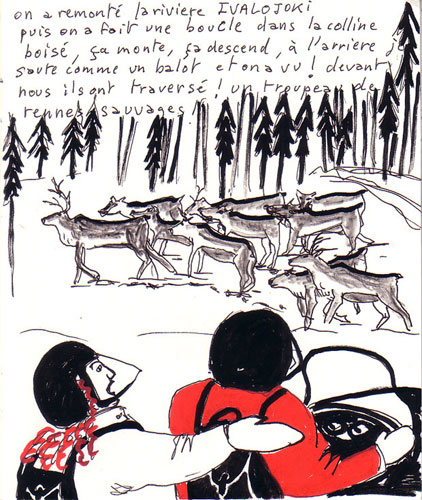 on a remonté la rivière IVALOJOKI
puis on a fait une boucle dans la colline
boisé, ça monte, ça descend, à l'arrière j
saute comme un balot et on a vu ! devant
nous ils ont traversé ! un troupeau de
rennes sauvages !